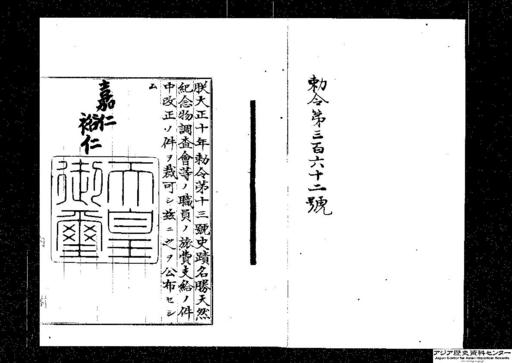 勅令第三百六十二號
朕大正十年勅令第十三號史蹟名勝天然
紀念物調査會等ノ職員ノ旅費支給ノ件
中改正ノ件ヲ裁可シ玆ニ之ヲ公布セシ
ム
嘉仁
裕仁
天皇
御璽
アジア歴史資料センター
Japan Center for Asian Historical Records